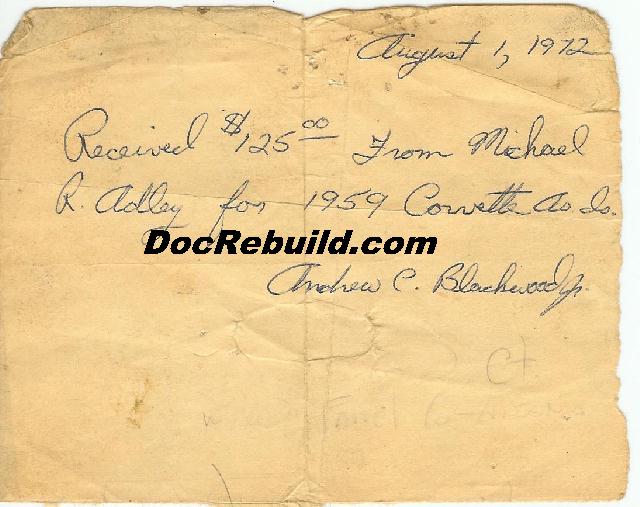 August 1, 1972
Received $125.00 From Michael
R. Adley for 1959 Corvette As Is.
DocRebuild.com
Andrew C. Blackwood Jr.
Ct